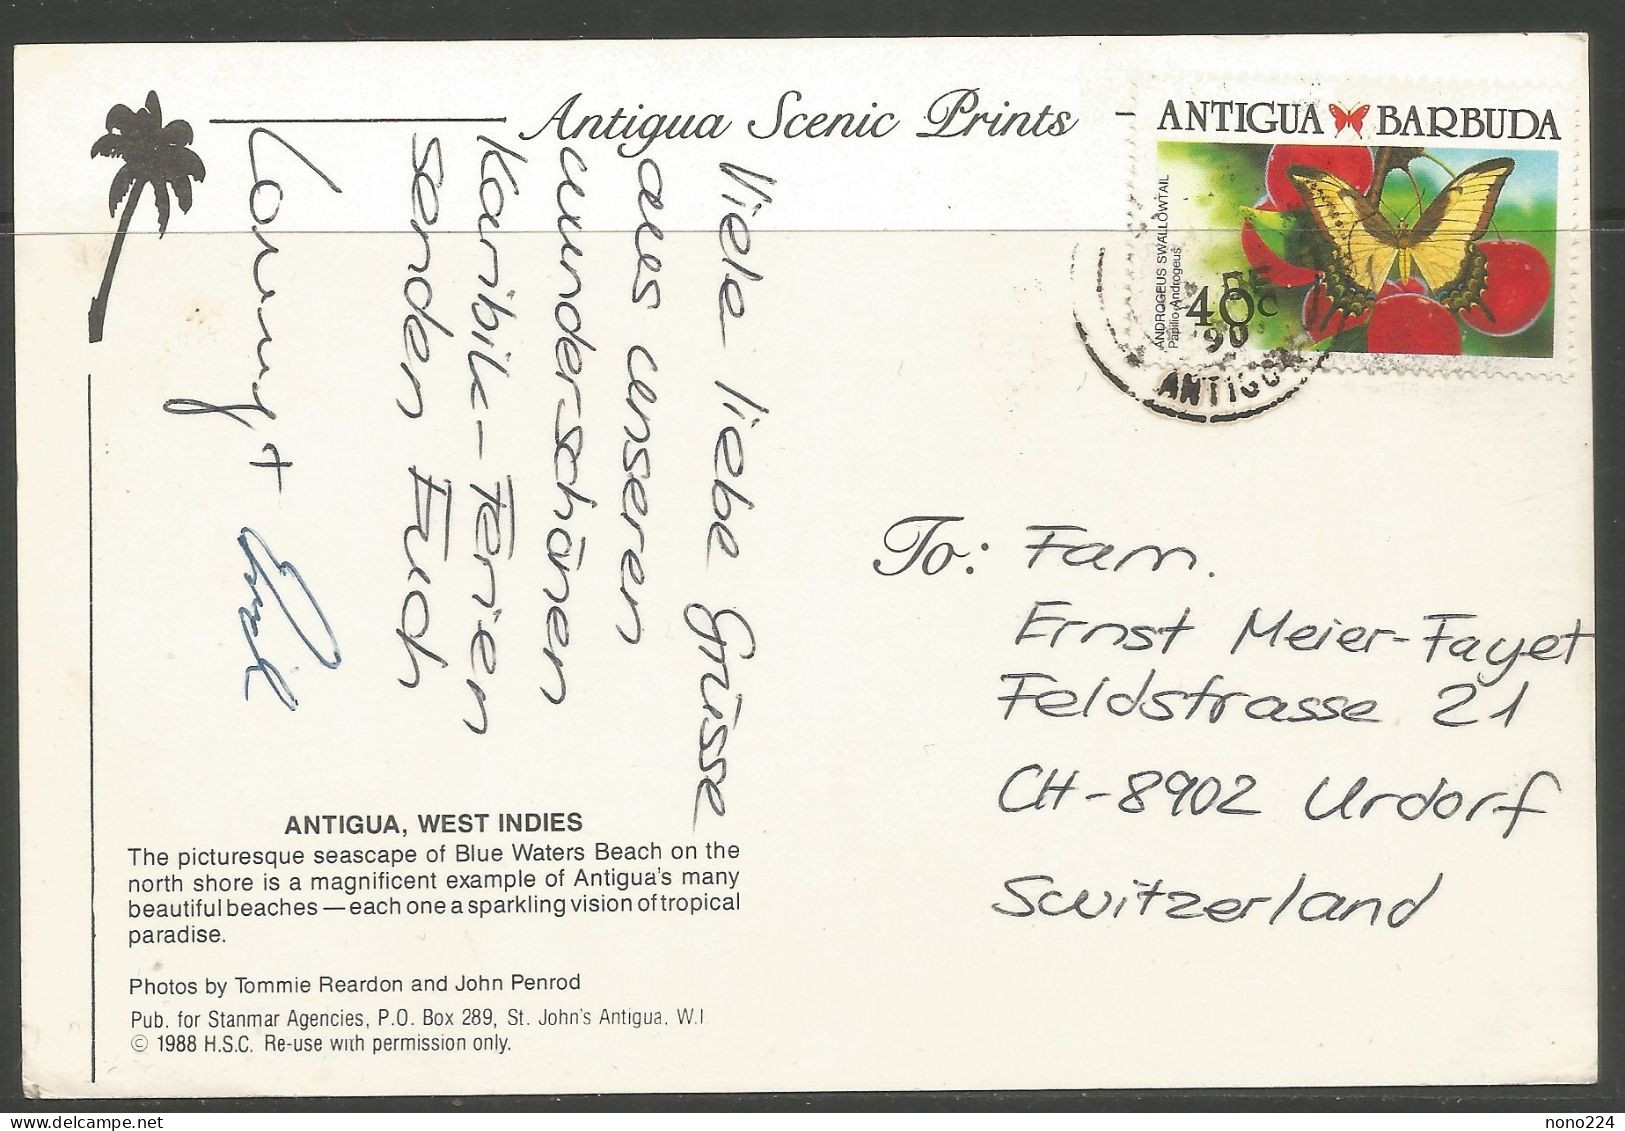 Antigua Scenic Prints
ANTIGUA BARBUDA
ANDROGEUS SWALLOWTAIL
Papilio Androgeus
40c
DE
90
ANTIGU
Viele liebe Grüsse
aus unseren
wunderschönen
Karibik-Ferien
senden Euch
+
To: Fam.
Ernst Meier-Fayet
Feldstrasse 21
CH-8902 Urdorf
Switzerland
ANTIGUA, WEST INDIES
The picturesque seascape of Blue Waters Beach on the
north shore is a magnificent example of Antigua's many
beautiful beaches — each one a sparkling vision of tropical
paradise.
Photos by Tommie Reardon and John Penrod
Pub. for Stanmar Agencies, P.O. Box 289, St. John's Antigua, W.I.
© 1988 H.S.C. Re-use with permission only.
nono224